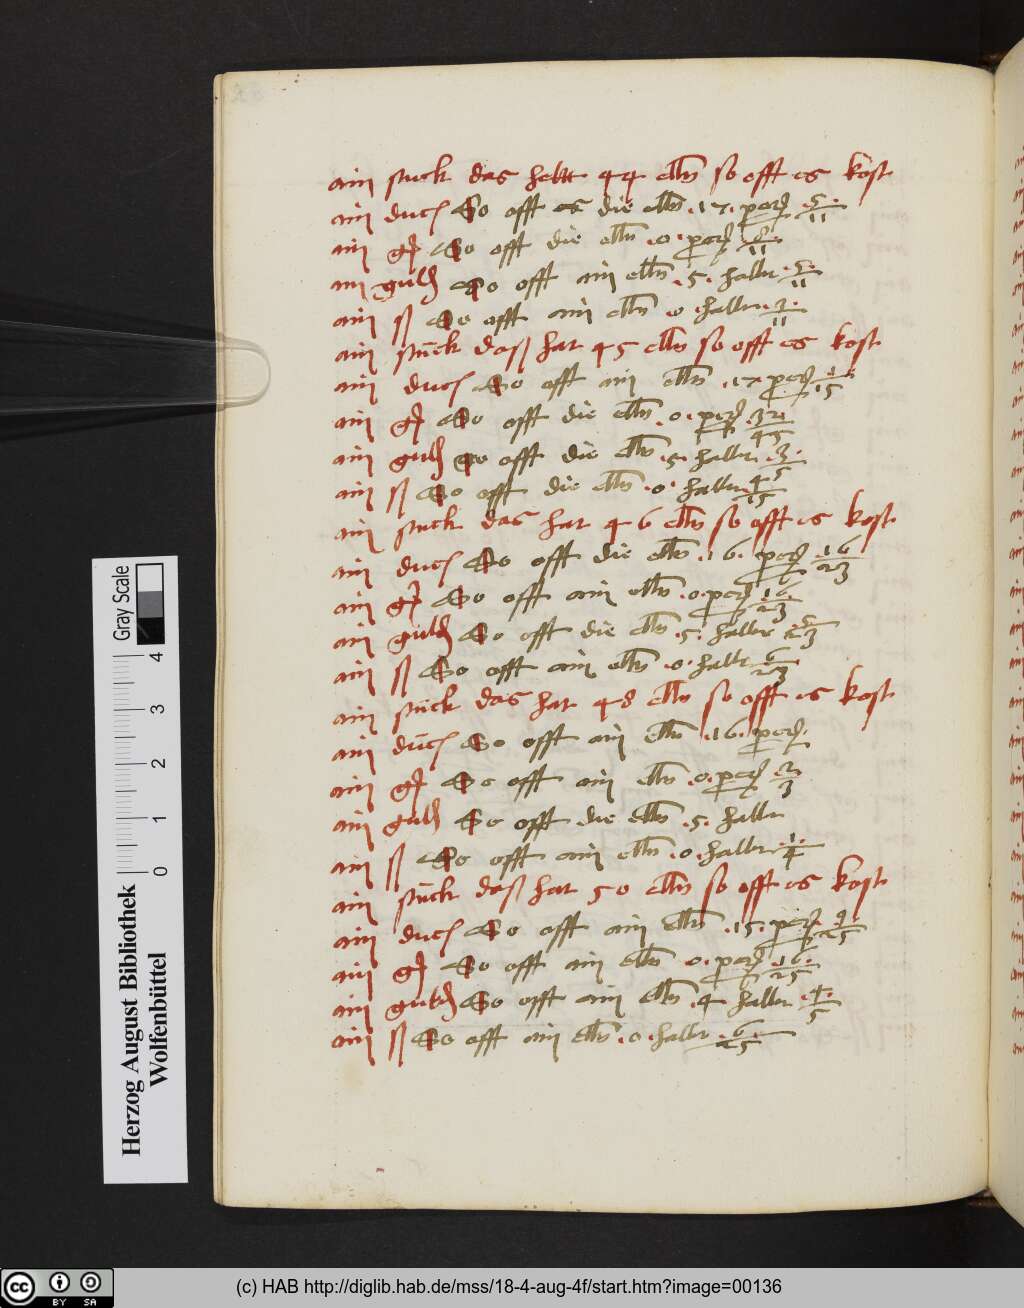 ain stuck das heltt 44 elln so offt es kost
ain duc So offt es die elln .17. perner 5/11
ain gl So offt die elln .0. perner 8/11
ain guld So offt ain elln .5. haller 5/11
ain ß So offt ain elln .0. haller 3/11
ain stuck daß hat 45 elln so offt es kost
ain duc So offt ain elln .17. perner 1/15
ain gl So offt die elln .0. perner 32/45
ain guld So offt die elln .5. haller 3/5
ain ß So offt die elln .0. haller 4/15
ain stuck das hat 46 elln so offt es kost
ain duc So offt die elln .16. perner 16/23
ain gl So offt ain elln .0. perner 16/23
ain guld So offt die elln .5. haller 5/23
ain ß So offt ain elln .0. haller 6/23
ain stuck das hat 48 elln so offt es kost
ain duc So offt ain elln .16. perner.
ain gl So offt ain elln .0. perner 2/3
ain guld So offt die elln .5. haller
ain ß So offt ain elln .0. haller 1/4
ain stuck daß hat 50 elln so offt es kost
ain duc So offt ain elln .15. perner 9/25
ain gl So offt ain elln .0. perner 16/25
ain guld So offt ain elln .4 haller 4/5
ain ß So offt ain elln .0. haller 6/25
Herzog August Bibliothek
Wolfenbüttel
Gray Scale
0 1 2 3 4
cc BY SA
(c) HAB http://diglib.hab.de/mss/18-4-aug-4f/start.htm?image=00136